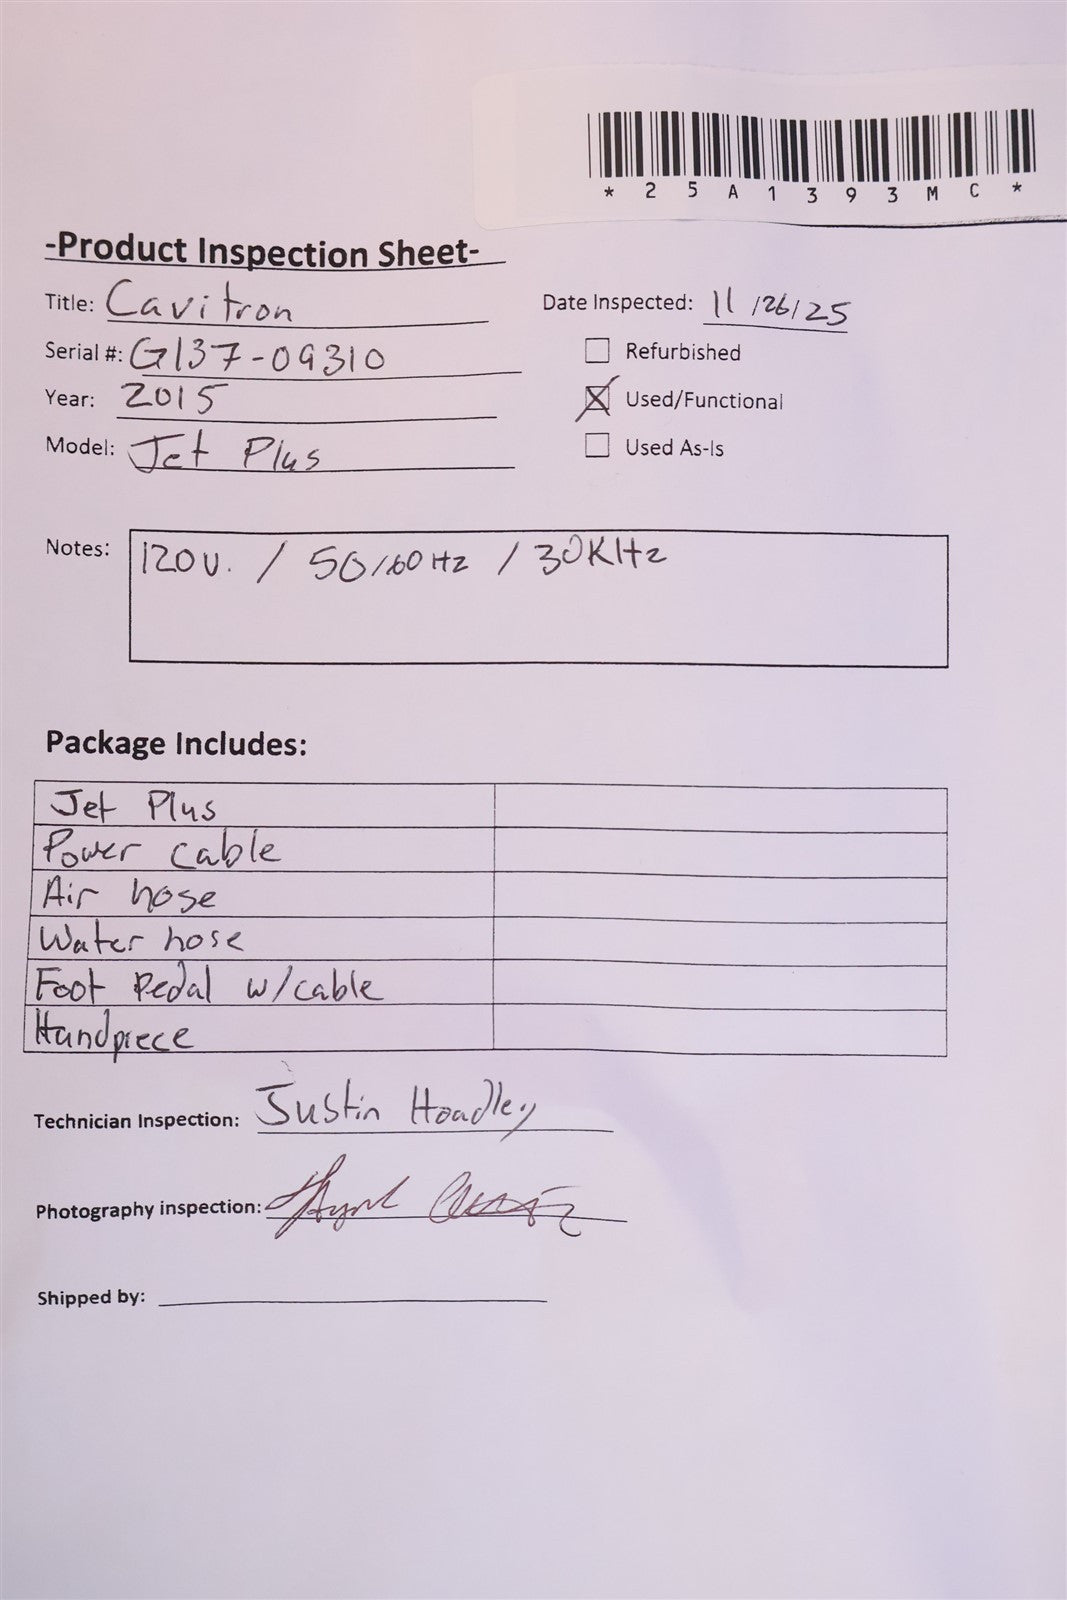 *25A1393MC*
-Product Inspection Sheet-
Title: Cavitron
Date Inspected: 11/26/25
Serial #: G137-09310
Refurbished
Year: 2015
Used/Functional
Model: Jet Plus
Used As-Is
Notes: 120V. / 50/60Hz / 30KHz
Package Includes:
Jet Plus
Power cable
Air hose
Water hose
Foot Pedal w/cable
Handpiece
Technician Inspection: Justin Hoadley
Photography inspection:
Shipped by: